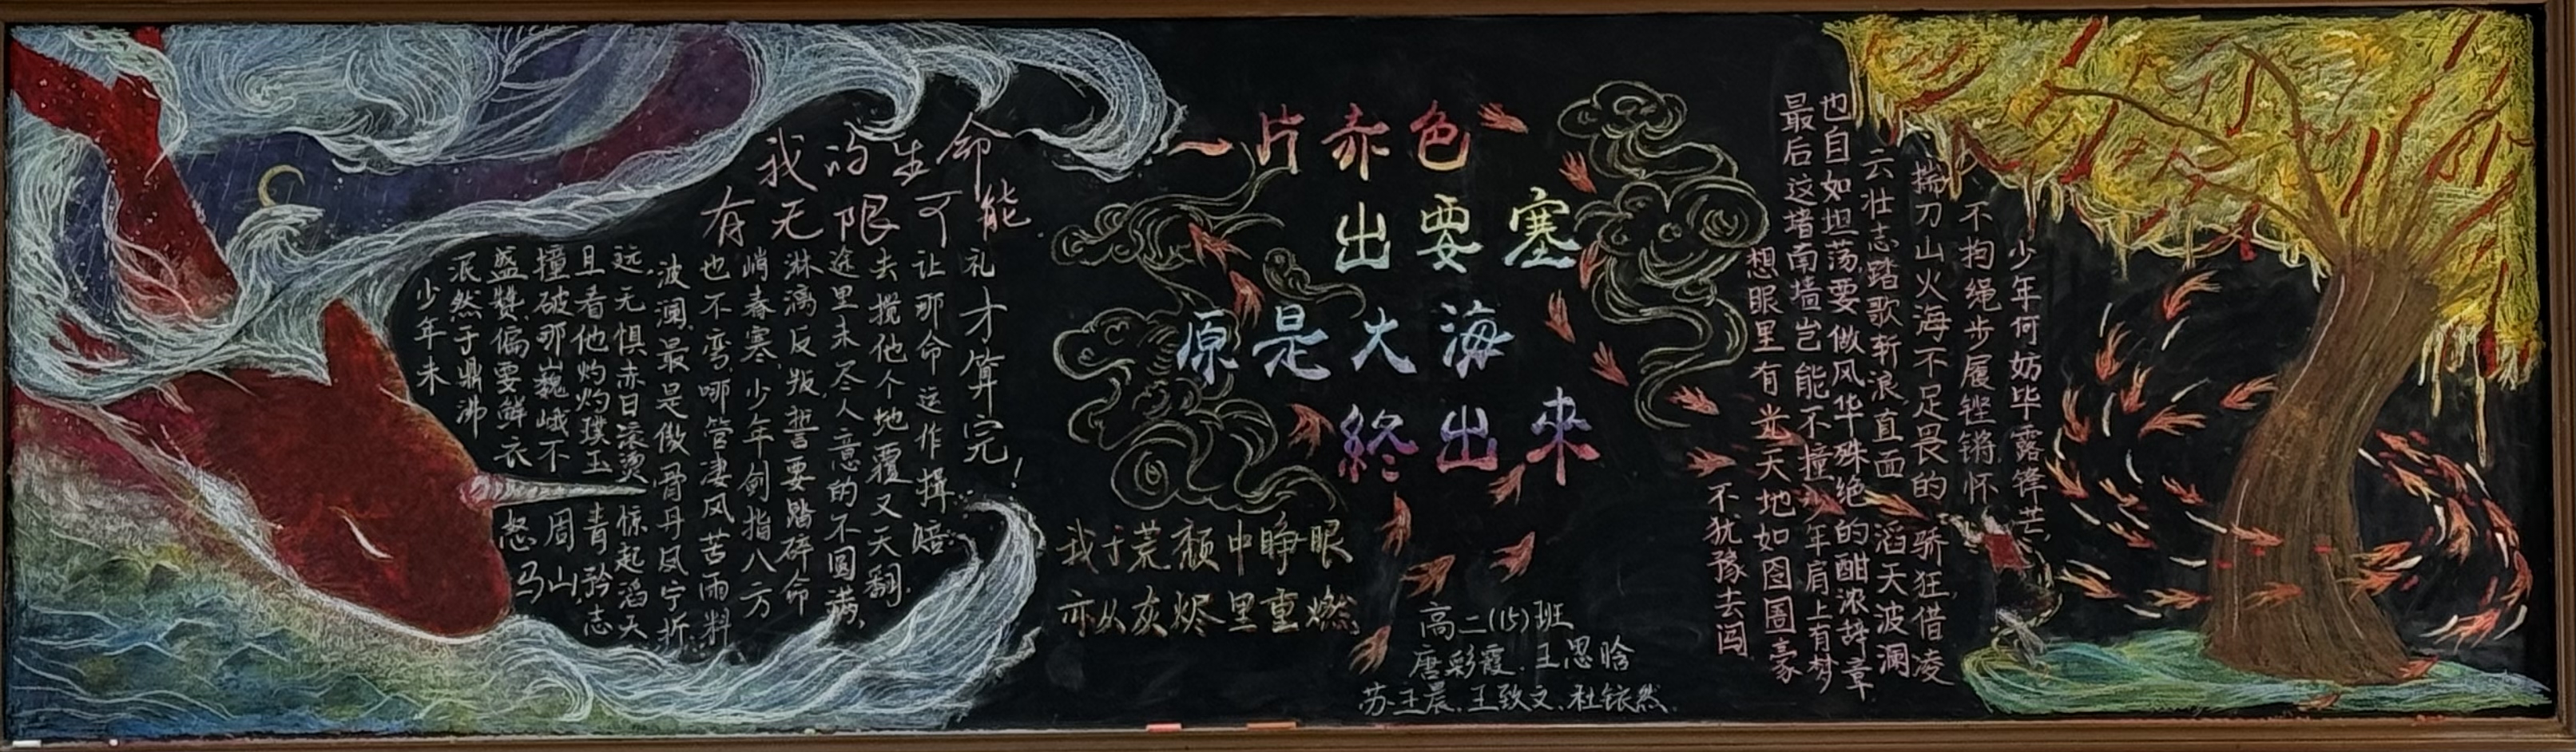 我的生命
有无限可能
少年未
泯然于鼎沸
盛赞,偏要鲜衣怒马
撞破那巍峨不周山,
且看他灼灼璞玉青矜志
远,无惧赤日滚烫,惊起滔天
波澜,最是傲骨丹凤宁折
也不弯,哪管凄风苦雨料
峭春寒,少年剑指八方
淋漓反叛,誓要踏碎命
途里未尽人意的不圆满,
去搅他个地覆又天翻,
让那命运作揖赔
礼才算完!
一片赤色
出要塞
原是大海
終出來
我于荒颓中睁眼
亦从灰烬里重燃
高二(15)班
唐彩霞.王思晗
苏玉晨.王致文.杜依然.
少年何妨毕露锋芒,
不拘绳步履铿锵怀
揣刀山火海不足畏的骄狂借凌
云壮志踏歌斩浪直面滔天波澜
也自如坦荡,要做风华殊绝的酣浓辞章
最后这堵南墙岂能不撞少年肩上有梦
想眼里有光天地如囹圄豪
不犹豫去闯